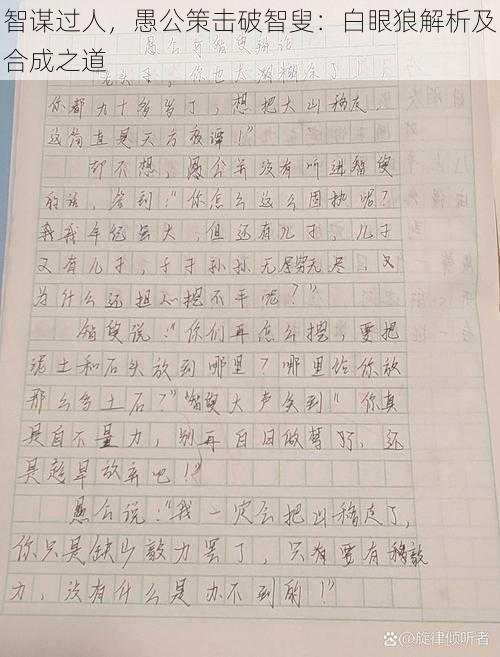 智谋过人，愚公策击破智叟：白眼狼解析及
合成之道
愚公与智叟辩论
"老头子，你也太糊涂了！
你都九十多岁了，想把大山移走，
这简直是天方夜谭！"
却不想，愚公并没有听进智叟
的话，答到："你怎么这么固执呢？
我年纪虽大，但还有儿子，儿子
又有儿子，子子孙孙无穷无尽，又
为什么还担心挖不平呢？"
智叟说："你们再怎么挖，要把
泥土和石头放到哪里？哪里给你放
那么多土石？"智叟大声笑到"你真
是自不量力，别再白日做梦了，还
是趁早放弃吧！"
愚公说："我一定会把山移走了，
你只是缺少毅力罢了，只有要有移毅
力，没有什么是办不到的！"
@旋律倾听者